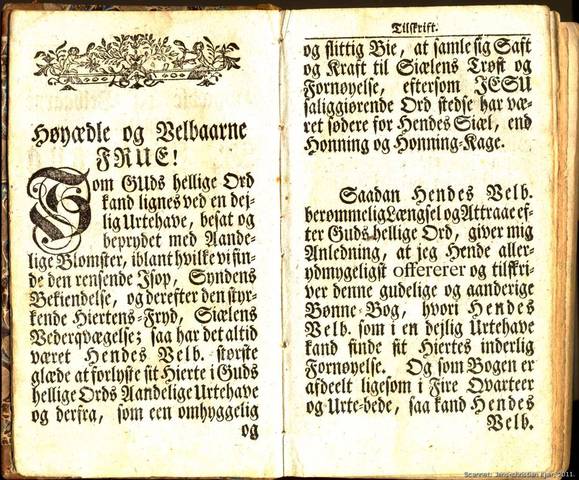 Høyædle og Velbaarne
FRUE!
Som GUds hellige Ord
kand lignes ved en dej-
lig Urtehave, besat og
beprydet med Aande-
lige Blomster, iblant hvilke vi fin-
de den rensende Isop, Syndens
Bekiendelse, og derefter den styr-
kende Hiertens-Fryd, Siælens
Vederqvægelse; saa har det altid
været Hendes Velb. største
glæde at forlyste sit Hierte i Guds
hellige Ords Aandelige Urtehave
og derfra, som een omhyggelig
og
Tilskrift.
og flittig Bie, at samle sig Saft
og Kraft til Siælens Trøst og
Fornøyelse, eftersom JESU
saliggiørende Ord stedse har væ-
ret sødere for Hendes Siæl, end
Honning og Honning-Kage.
Saadan Hendes Velb.
berømmelig Længsel og Attraae ef-
ter Guds hellige Ord, giver mig
Anledning, at jeg Hende aller-
ydmygeligst offererer og tilskri-
ver denne gudelige og aanderige
Bønne-Bog, hvori Hendes
Velb. som i en dejlig Urtehave
kand finde sit Hiertes inderlig
Fornøyelse. Og som Bogen er
afdeelt ligesom i Fire Qvarteer
og Urte-bede, saa kand Hendes
Velb.
Scannet: Jens-christian Kjær, 2011.